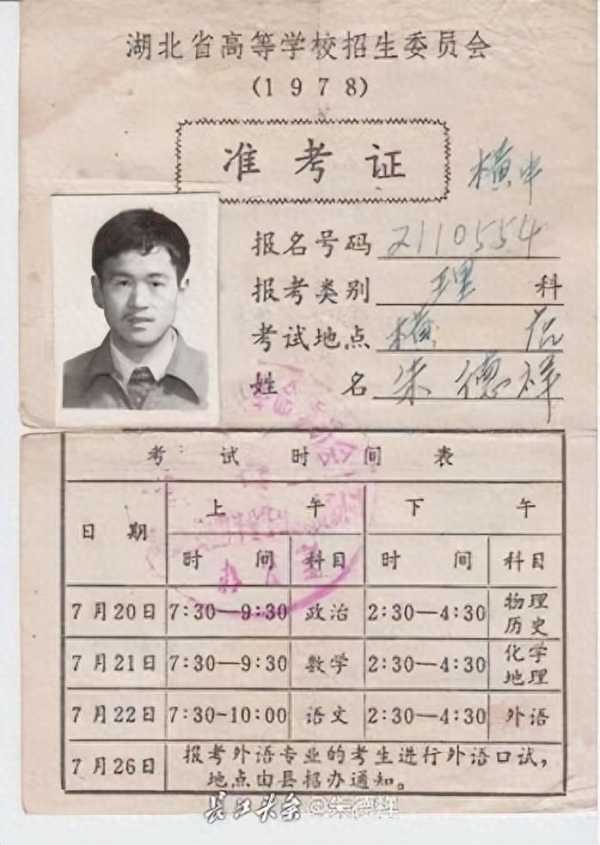 湖北省高等学校招生委员会
(1978)
准考证
横中
报名号码 2110554
报考类别 理 科
考试地点 横
姓 名 朱德祥
考试时间表
日期 上午 下午
时间 科目 时间 科目
7月20日 7:30—9:30 政治 2:30—4:30 物理
历史
7月21日 7:30—9:30 数学 2:30—4:30 化学
地理
7月22日 7:30-10:00 语文 2:30—4:30 外语
7月26日 报考外语专业的考生进行外语口试,
地点由县招办通知。
长江大学@朱德祥